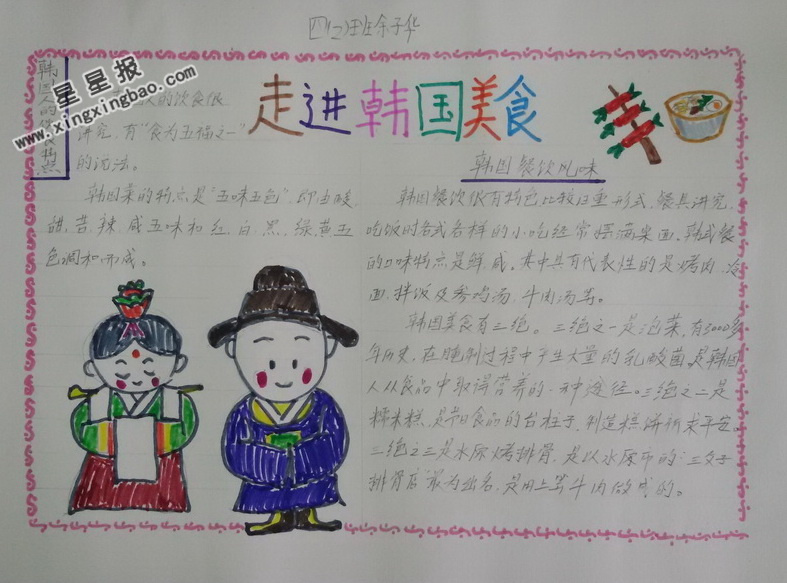 四(2)班余子华
星星报
www.xingxingbao.com
走进韩国美食
韩国人的饮食特点
人的饮食很
讲究,有“食为五福之一”
的说法。
韩国菜的特点是“五味五色”,即由酸、
甜、苦、辣、咸五味和红、白、黑、绿、黄五
色调和而成。
韩国餐饮风味
韩国餐饮很有特色,比较注重形式,餐具讲究,
吃饭时各式各样的小吃经常摆满桌面。韩式餐
的口味特点是鲜、咸。其中具有代表性的是烤肉、冷
面、拌饭及参鸡汤、牛肉汤等。
韩国美食有三绝。三绝之一是泡菜,有3000多
年历史,在腌制过程中产生大量的乳酸菌,是韩国
人从食品中取得营养的一种途径。三绝之二是
糯米糕,是节日食品的台柱子,制造糕饼祈求平安。
三绝之三是水原烤排骨,是以水原市的“三父子
排骨店”最为出名,是用上等牛肉做成的。